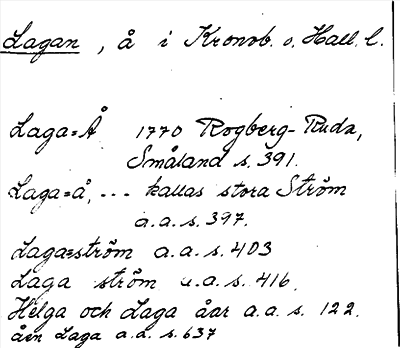 Lagan, å i Kronob. o. Hall. l.
Laga=Å 1770 Rogberg-Ruda,
Småland s. 391.
Laga=å, ... kallas stora Ström
a.a.s. 397.
Laga=ström a.a.s. 403
Laga ström a.a.s. 416.
Helga och Laga åar a.a.s. 122.
åen Laga a.a. s. 637